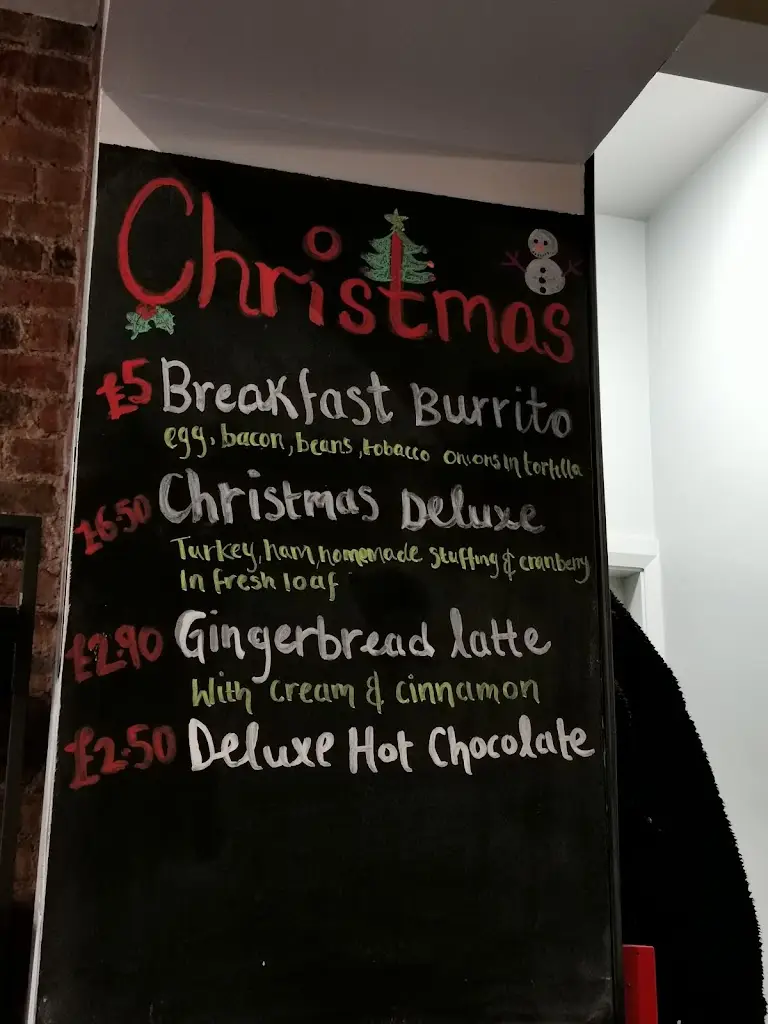 Christmas
£5 Breakfast Burrito
egg, bacon, beans, tobacco onions in tortilla
£6.50 Christmas Deluxe
Turkey, ham, homemade stuffing & cranberry
In fresh loaf
£2.90 Gingerbread latte
With cream & cinnamon
£2.50 Deluxe Hot Chocolate